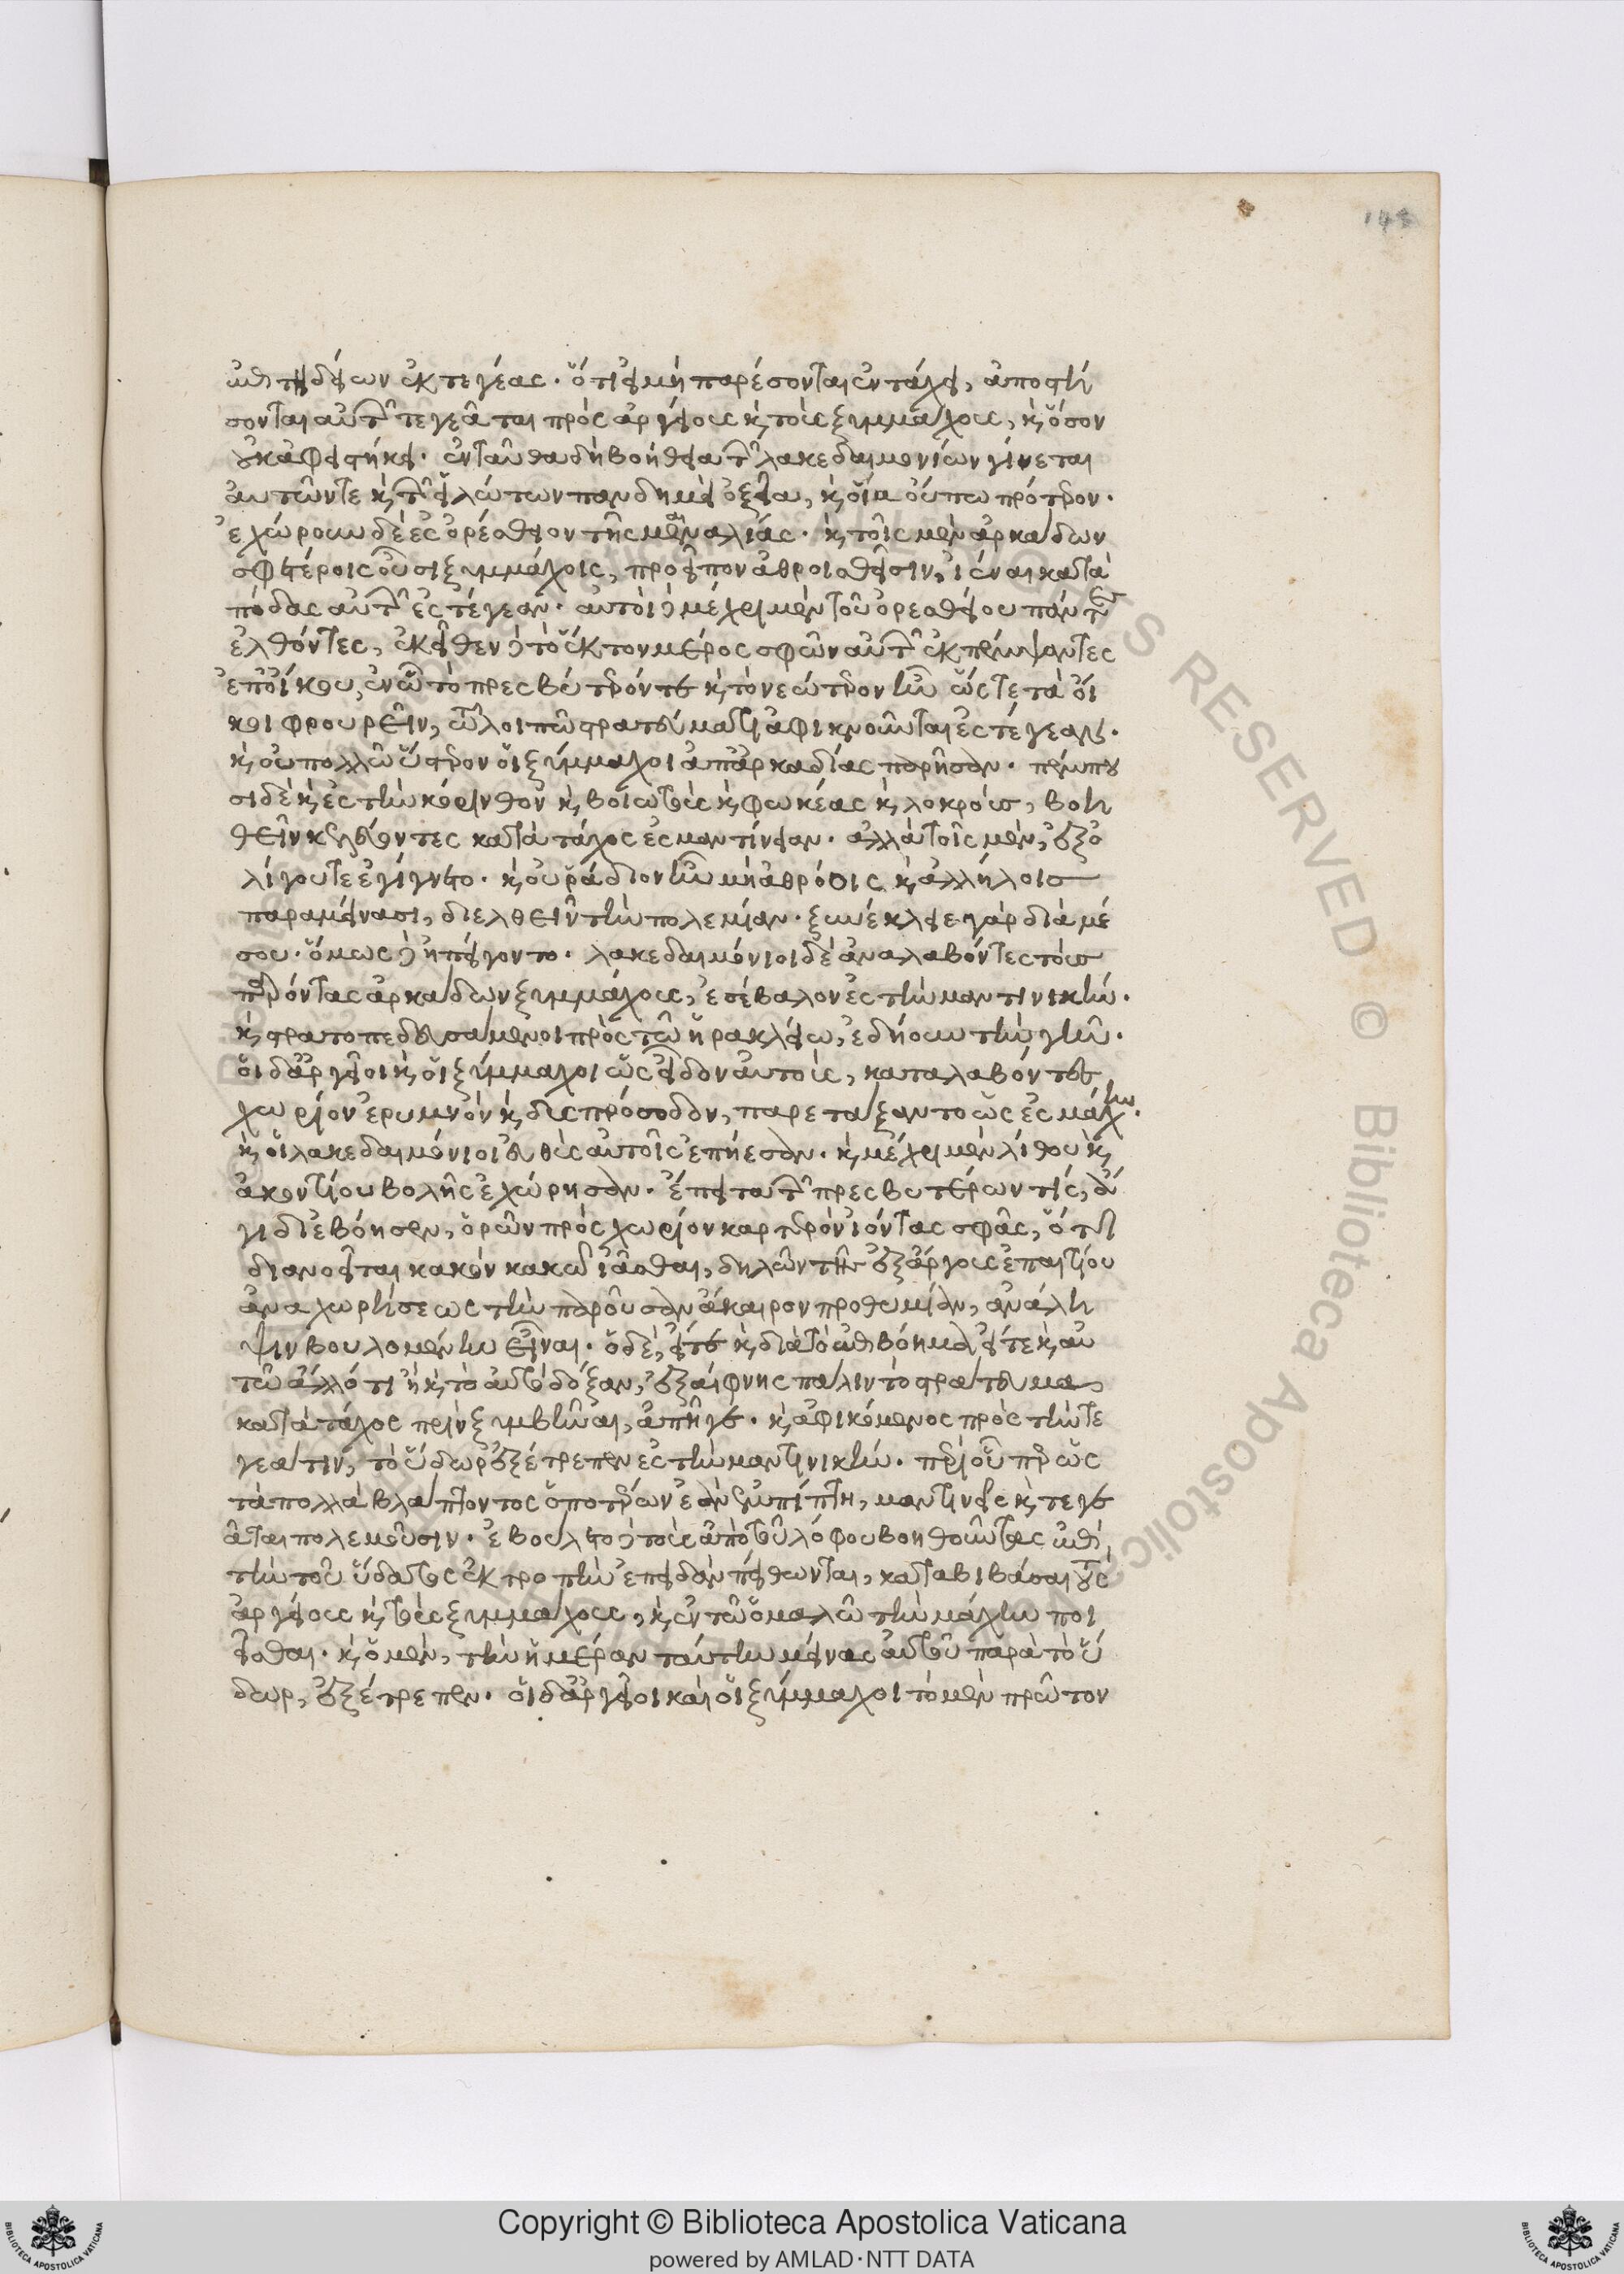 ἐπιτηδείων ἐκ τεγέας· ὅτι εἰ μὴ παρέσονται ἐν τάχει, ἀποστή
σονται αὐτῶν τεγεᾶται πρὸς ἀργείους κ τοὺς ξυμμάχους, κ ὅσον
οὐκ ἀφεστήκει· ἐνταῦθα δὴ βοήθεια τῶν λακεδαιμονίων γίνεται
αυτῶν τε κ τῶν εἱλώτων πανδημεὶ ὀξεῖα, κ οἵα οὔπω πρότερον·
ἐχώρουν δὲ ἐς ὀρέσθειον τῆς μαιναλίας· κ τοῖς μὲν ἀρκάδων
σφετέροις οὖσι ξυμμάχοις, προεῖπον ἀθροισθεῖσιν, ἰέναι κατὰ
πόδας αὐτῶν ἐς τέγεαν· αυτοὶ δὲ μέχρι μὲν τοῦ ὀρεσθείου πάντες
ἐλθόντες, ἐκεῖθεν δὲ τὸ ἕκτον μέρος σφῶν αὐτῶν ἐκπέμψαντες
ἐπ οἴκου, ἐν ᾧ τὸ πρεσβύτερόν τε κ τὸ νεώτερον ἦν ὥστε τὰ οἴ
κοι φρουρεῖν, τῷ λοιπῷ στρατεύματι ἀφικνοῦνται ἐς τέγεαν·
κ οὐ πολλῷ ὕστερον οἱ ξύμμαχοι ἀπ ἀρκαδίας παρῆσαν· πέμπου
σι δὲ κ ἐς τὴν κόρινθον κ βοιωτοὺς κ φωκέας κ λοκροὺς, βοη
θεῖν κελεύοντες κατὰ τάχος ἐς μαντίνειαν· ἀλλὰ τοῖς μὲν, ἐξ ὀ
λίγου τε ἐγίγνετο· κ οὐ ῥάδιον ἦν μὴ ἀθρόοις κ ἀλλήλοις
παραμείνασι, διελθεῖν τὴν πολεμίαν· ξυνέκλειε γὰρ διὰ μέ
σου· ὅμως δὲ ἠπείγοντο· λακεδαιμόνιοι δὲ ἀναλαβόντες τοὺς
παρόντας ἀρκάδων ξυμμάχους, ἐσέβαλον ἐς τὴν μαντινικήν·
κ στρατοπεδευσάμενοι πρὸς τῷ ἡρακλείῳ, ἐδήουν τὴν γῆν·
οἱ δ ἀργεῖοι κ οἱ ξύμμαχοι ὡς εἶδον αυτοὺς, καταλαβόντες
χωρίον ἐρυμνὸν κ δυσπρόσοδον, παρετάξαντο ὡς ἐς μάχην·
κ οἱ λακεδαιμόνιοι εὐθὺς αὐτοῖς ἐπῄεσαν· κ μέχρι μὲν λίθου κ
ἀκοντίου βολῆς ἐχώρησαν· ἔπειτα τῶν πρεσβυτέρων τὶς, ἄ
γιδι ἐβόησεν, ὁρῶν πρὸς χωρίον καρτερὸν ἰόντας σφᾶς, ὅτι
διανοεῖται κακὸν κακῷ ἰᾶσθαι, δηλῶν τῆς ἐξ ἄργους ἐπαιτίου
ἀναχωρήσεως τὴν παροῦσαν ἄκαιρον προθυμίαν, ἀνάλη
ψιν βουλομένην εἶναι· ὁ δὲ, εἴτε κ διὰ τὸ ἐπιβόημα εἴτε κ αὐ
τῷ ἄλλό τι ἢ κ τὸ αὐτὸ δόξαν, ἐξαίφνης πάλιν τὸ στράτευμα
κατὰ τάχος πρὶν ξυμβῆναι, ἀπῆγε· κ ἀφικόμενος πρὸς τὴν τε
γεάτιν, τὸ ὕδωρ ἐξέτρεπεν ἐς τὴν μαντινικήν· περὶ οὗπερ ὡς
τὰ πολλὰ βλάπτοντος ὁποτέρων ἐὰν ἐμπίπτῃ, μαντινεῖς κ τεγε
ᾶται πολεμοῦσιν· ἐβούλετο δὲ τοὺς ἀπὸ τοῦ λόφου βοηθοῦντας ἐπὶ
τὴν τοῦ ὕδατος ἐκτροπὴν ἐπειδὰν πείθωνται, καταβιβάσαι τοὺς
ἀργείους κ τοὺς ξυμμάχους, κ ἐν τῷ ὁμαλῷ τὴν μάχην ποι
εῖσθαι· κ ὁ μὲν, τὴν ἡμέραν ταύτην μείνας αὐτοῦ παρὰ τὸ ὕ
δωρ, ἐξέτρεπεν· οἱ δ ἀργεῖοι καὶ οἱ ξύμμαχοι τὸ μὲν πρῶτον
Copyright © Biblioteca Apostolica Vaticana
powered by AMLAD·NTT DATA